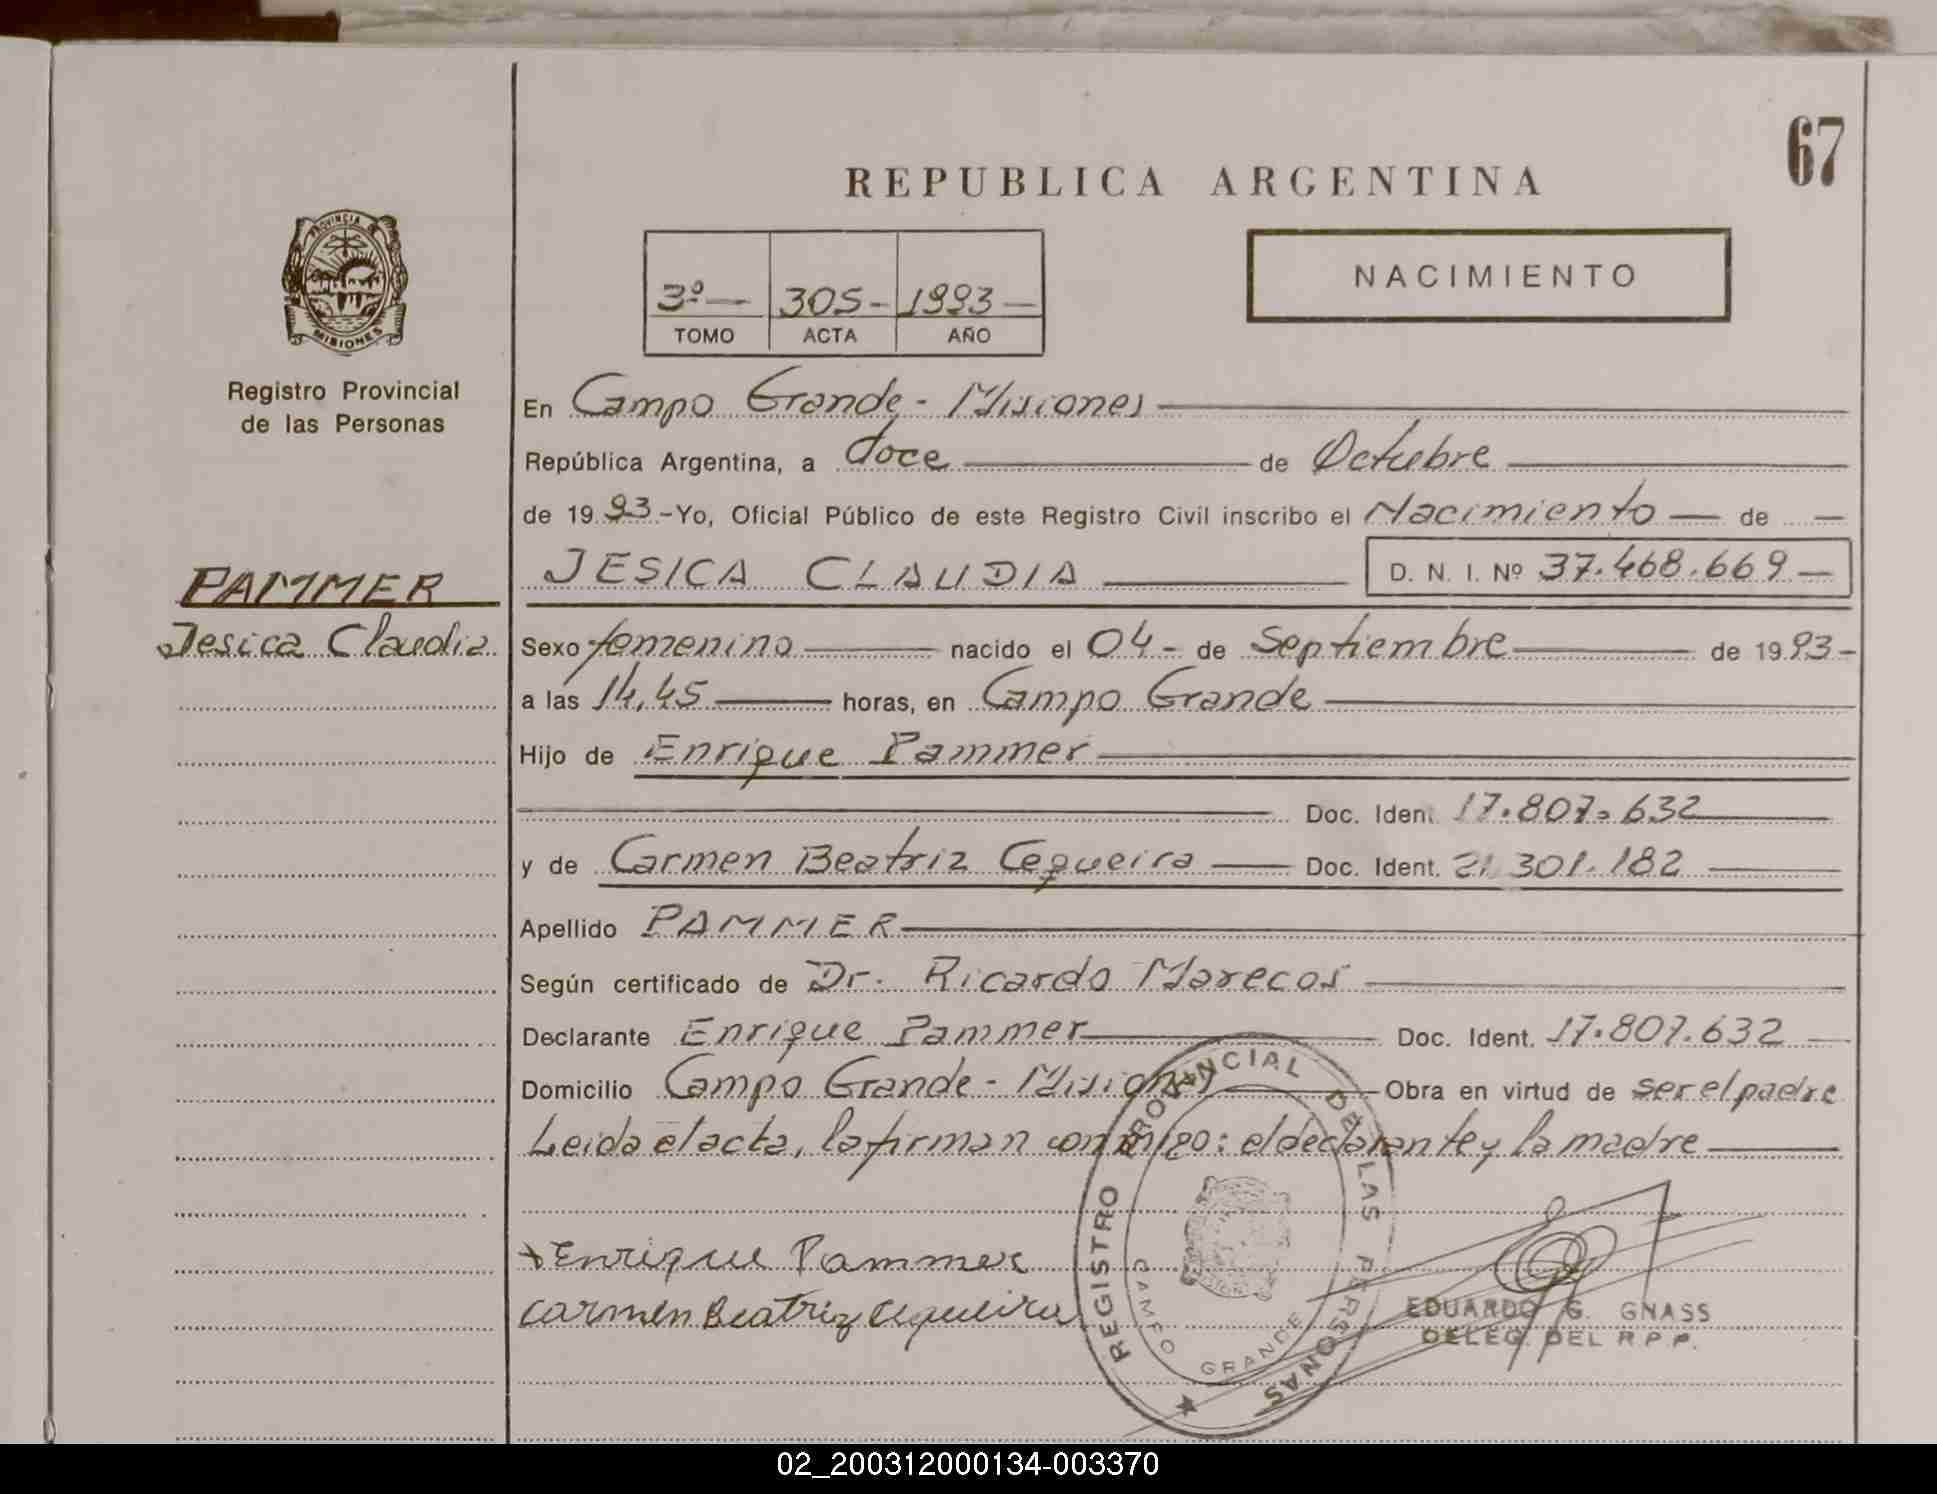 67
REPUBLICA ARGENTINA
PROVINCIA DE
MISIONES
Registro Provincial
de las Personas
3º— 305- 1993—
TOMO ACTA AÑO
NACIMIENTO
En Campo Grande - Misiones
República Argentina, a doce de Octubre
de 1993-Yo, Oficial Público de este Registro Civil inscribo el Nacimiento — de —
JESICA CLAUDIA D. N. I. Nº 37.468.669 —
PAMMER
Jesica Claudia
Sexo femenino nacido el 04 - de Septiembre de 1993-
a las 14,45 horas, en Campo Grande
Hijo de Enrique Pammer
Doc. Ident. 17.807.632
y de Carmen Beatriz Cequeira Doc. Ident. 21.301.182
Apellido PAMMER
Según certificado de Dr. Ricardo Marecos
Declarante Enrique Pammer Doc. Ident. 17.807.632
Domicilio Campo Grande - Misiones Obra en virtud de ser el padre
Leida el acta, la firman conmigo: el declarante y la madre
Enrique Pammer
Carmen Beatriz Cequeira
REGISTRO PROVINCIAL DE LAS PERSONAS
CAMPO GRANDE
EDUARDO G. GNASS
DELEG. DEL R.P.P.
02_200312000134-003370